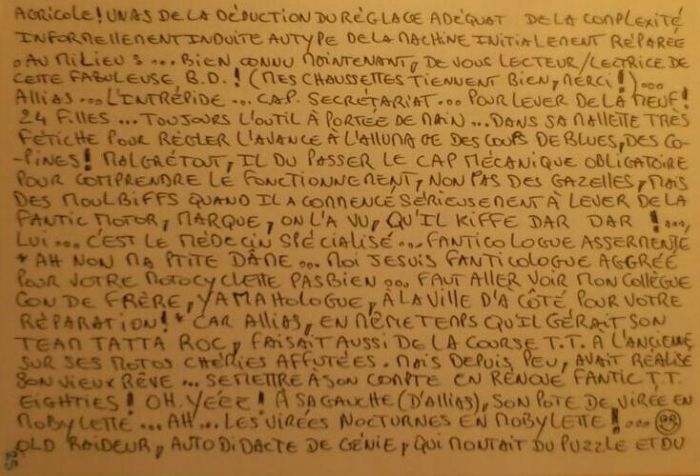 AGRICOLE! UN AS DE LA DÉDUCTION DU RÉGLAGE ADÉQUAT DE LA COMPLEXITÉ
INFORMELLEMENT INDUITE AU TYPE DE LA MACHINE INITIALEMENT RÉPARÉE
. AU MILIEU S ... BIEN CONNU MAINTENANT, DE VOUS LECTEUR/LECTRICE DE
CETTE FABULEUSE B.D.! (MES CHAUSSETTES TIENNENT BIEN, MERCI!)...
ALLIAS ... L'INTRÉPIDE ... CAP. SECRÉTARIAT ... POUR LEVER DE LA MEUF!
24 FILLES ... TOUJOURS L'OUTIL À PORTÉE DE MAIN ... DANS SA MALLETTE TRÈS
FÉTICHE POUR RÉGLER L'AVANCE À L'ALLUMAGE DES COUPS DE BLUES, DES CO-
-PINES! MALGRÉ TOUT, IL DU PASSER LE CAP MÉCANIQUE OBLIGATOIRE
POUR COMPRENDRE LE FONCTIONNEMENT, NON PAS DES GAZELLES, MAIS
DES MOULBIFFS QUAND IL A COMMENCÉ SÉRIEUSEMENT À LEVER DE LA
FANTIC MOTOR, MARQUE, ON L'A VU, QU'IL KIFFE DAR DAR! ...,
LUI ... C'EST LE MÉDECIN SPÉCIALISÉ ... FANTICOLOGUE ASSERMENTÉ
* AH NON MA PTITE DÂME ... MOI JE SUIS FANTICOLOGUE AGGRÉÉ
POUR VOTRE MOTOCYCLETTE PAS BIEN ... FAUT ALLER VOIR MON COLLÈGUE
CON DE FRÈRE, YAMAHOLOGUE, À LA VILLE D'À CÔTÉ POUR VOTRE
RÉPARATION! * CAR ALLIAS, EN MÊME TEMPS QU'IL GÉRAIT SON
TEAM TATTA ROC, FAISAIT AUSSI DE LA COURSE T.T. A L'ANCIENNE
SUR SES MOTOS CHÉRIES AFFUTÉES. MAIS DEPUIS PEU, AVAIT RÉALISÉ
SON VIEUX RÊVE ... SE METTRE À SON COMPTE EN RÉNOVE FANTIC T.T.
EIGHTIES! OH. YÉÉE! À SA GAUCHE (D'ALLIAS), SON POTE DE VIRÉE EN
MOBYLETTE ... AH ... LES VIRÉES NOCTURNES EN MOBYLETTE! ...
OLD RAIDEUR, AUTODIDACTE DE GÉNIE, QUI MONTAIT DU PUZZLE ET DU
25